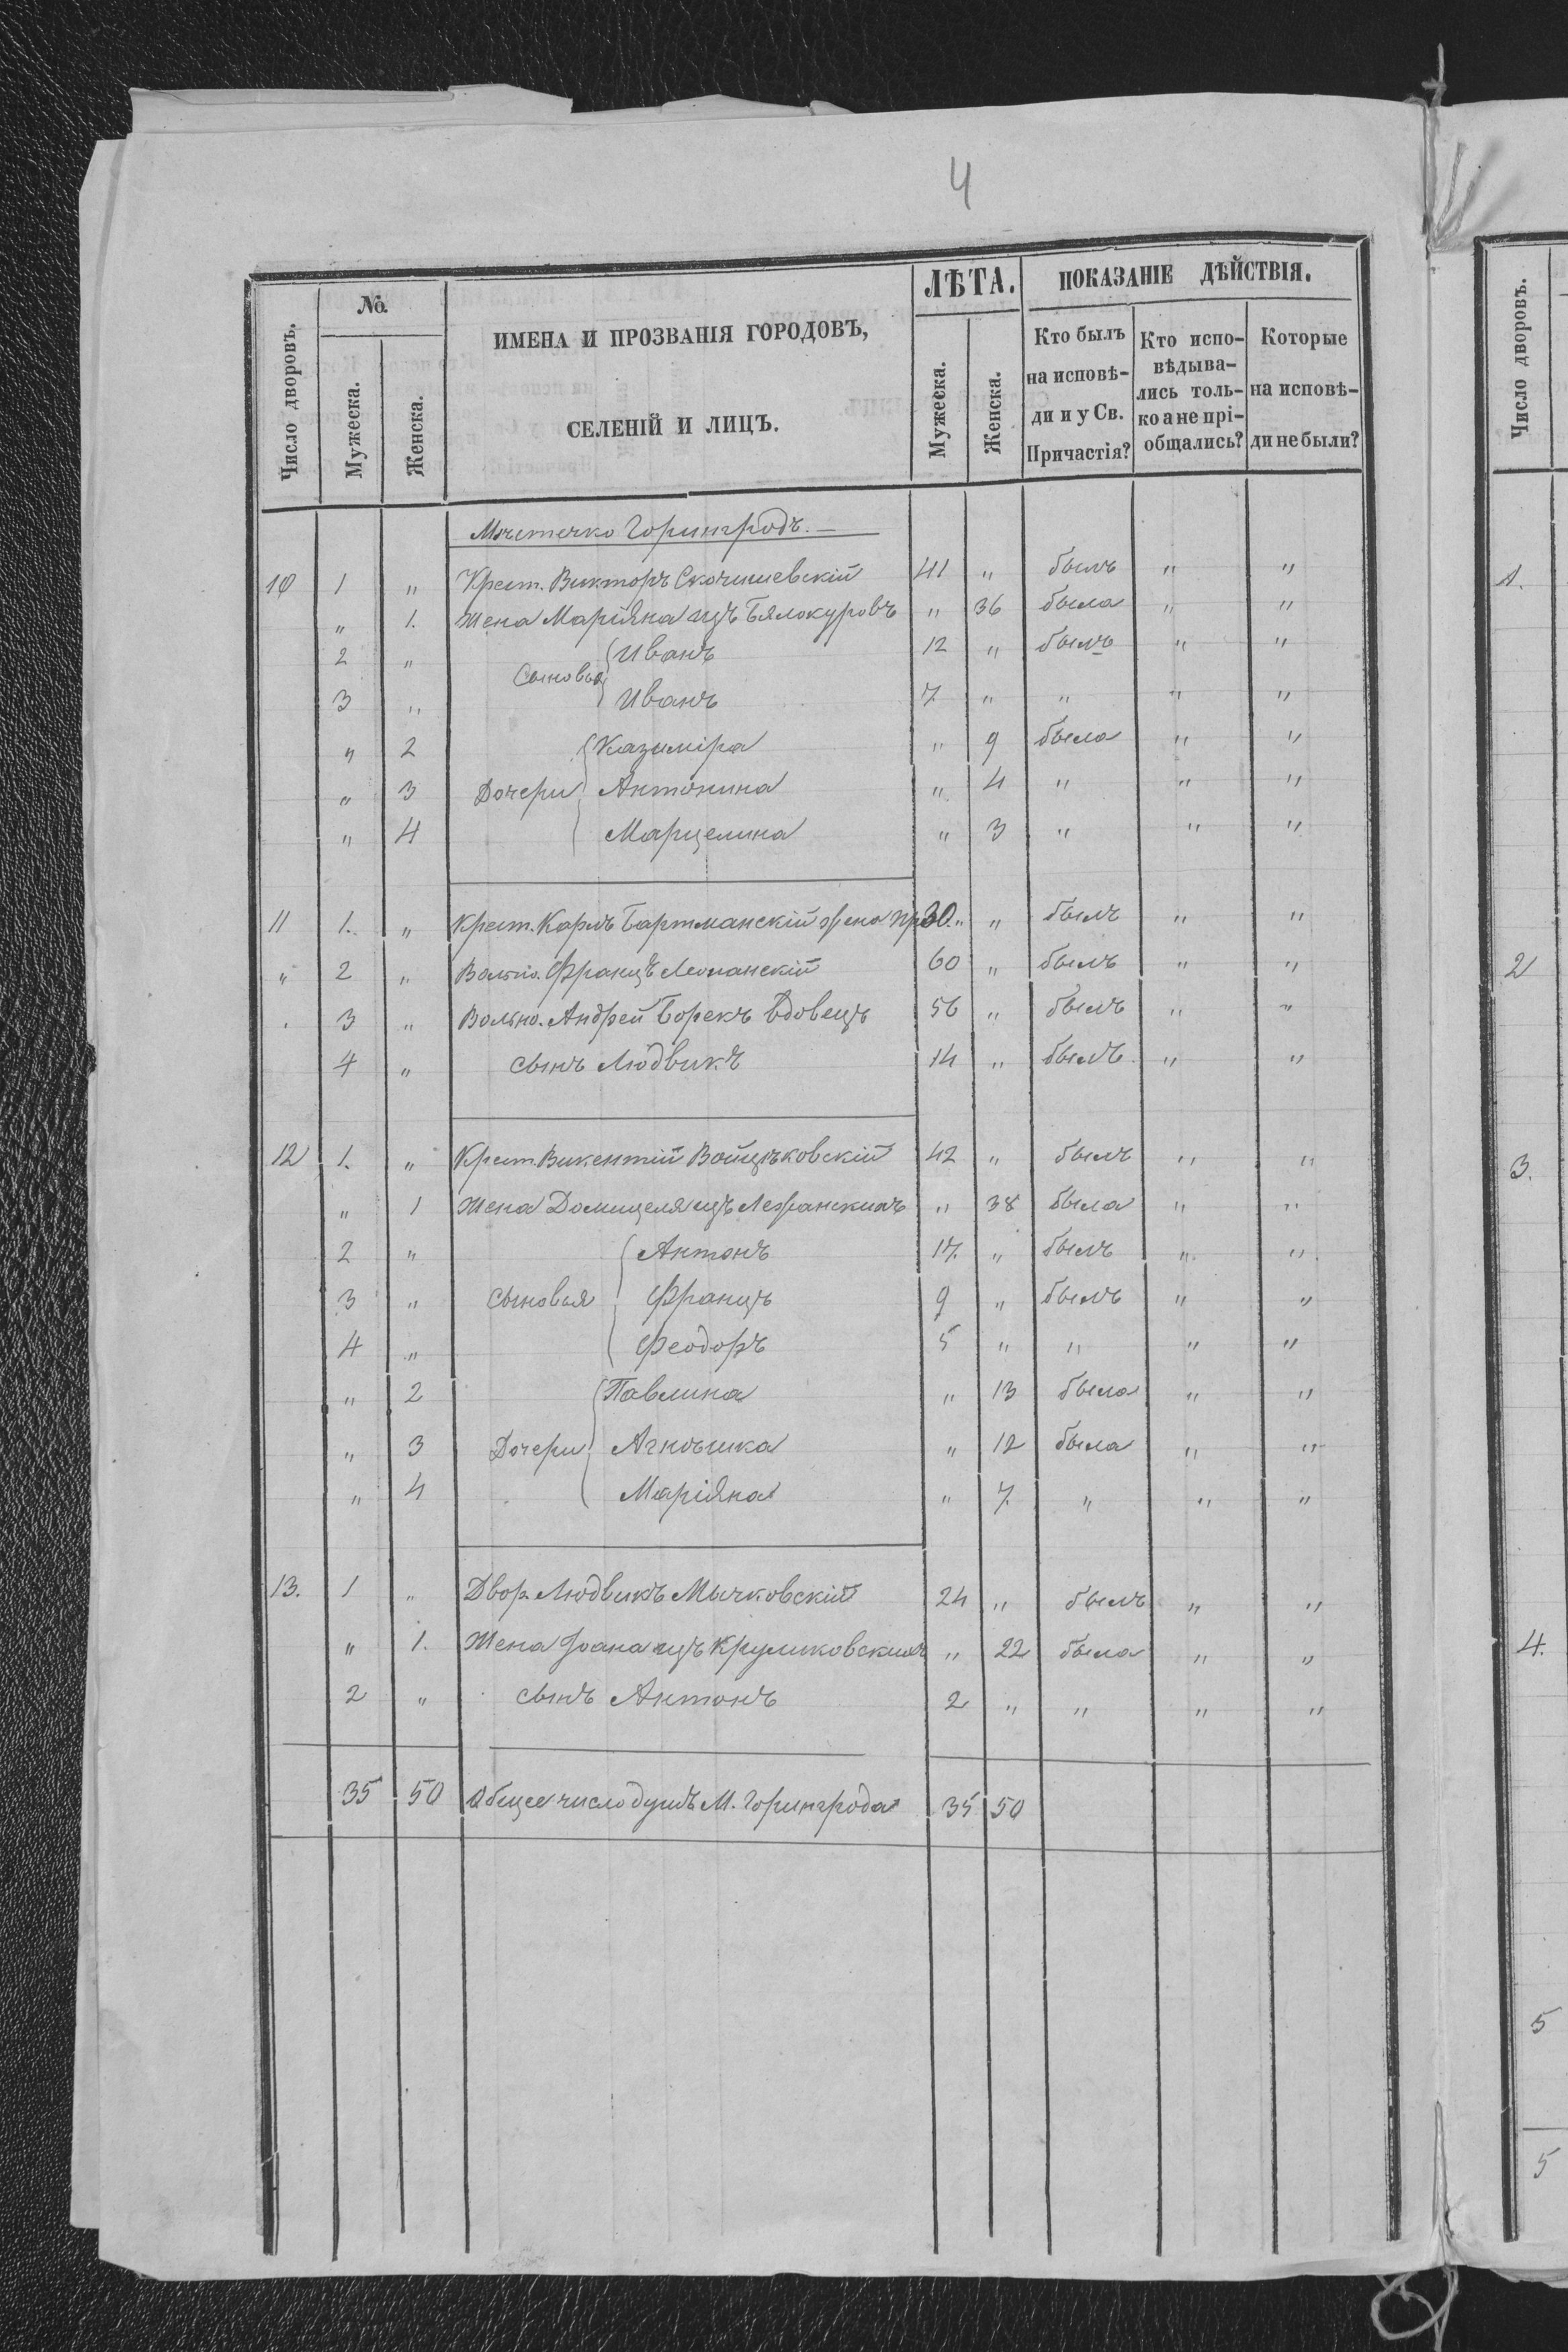 4
Число дворовъ.
№
Мужеска.
Женска.
ИМЕНА И ПРОЗВАНІЯ ГОРОДОВЪ,
СЕЛЕНІЙ И ЛИЦЪ.
ЛѢТА.
Мужеска.
Женска.
ПОКАЗАНІЕ ДѢЙСТВІЯ.
Кто былъ
на исповѣ-
ди и у Св.
Причастія?
Кто испо-
вѣдыва-
лись толь-
ко а не прі-
общались?
Которые
на исповѣ-
ди не были?
Мѣстечко Горингродъ.
10 1 " Крест. Викторъ Скочишевскій 41 " былъ " "
" 1. Жена Маріяна изъ Бялокуровъ " 36 была " "
2 " Сыновья Иванъ 12 " былъ " "
3 " Иванъ 7 " " " "
" 2 Казиміра " 9 была " "
" 3 Дочери Антонина " 4 " " "
" 4 Марцелина " 3 " " "
11 1. " Крест. Карлъ Бартманскій жена пр 30 " " былъ " "
" 2 " Вольно. Францъ 60 " былъ " "
3 " Вольно. Андрей Борекъ вдовецъ 56 " былъ " "
4 " сынъ Людвикъ 14 " былъ " "
12 1. " Крест. Викентій Войцѣковскій 42 " былъ " "
" 1 Жена Домицеля изъ " 38 была " "
2 " Антонъ 17 " былъ " "
3 " Сыновья Францъ 9 " былъ " "
4 " Феодоръ 5 " " " "
" 2 Павлина " 13 была " "
" 3 Дочери Агнѣшка " 12 была " "
" 4 Маріяна " 7 " " "
13. 1 " Двор. Людвикъ Мычковскій 24 " былъ " "
" 1. Жена Іоана изъ Круликовскихъ " 22 была " "
2 " сынъ Антонъ 2 " " " "
35 50 Общее число душъ М. Горингрода 35 50
Число дворовъ.
1.
2
3.
4.
5
5